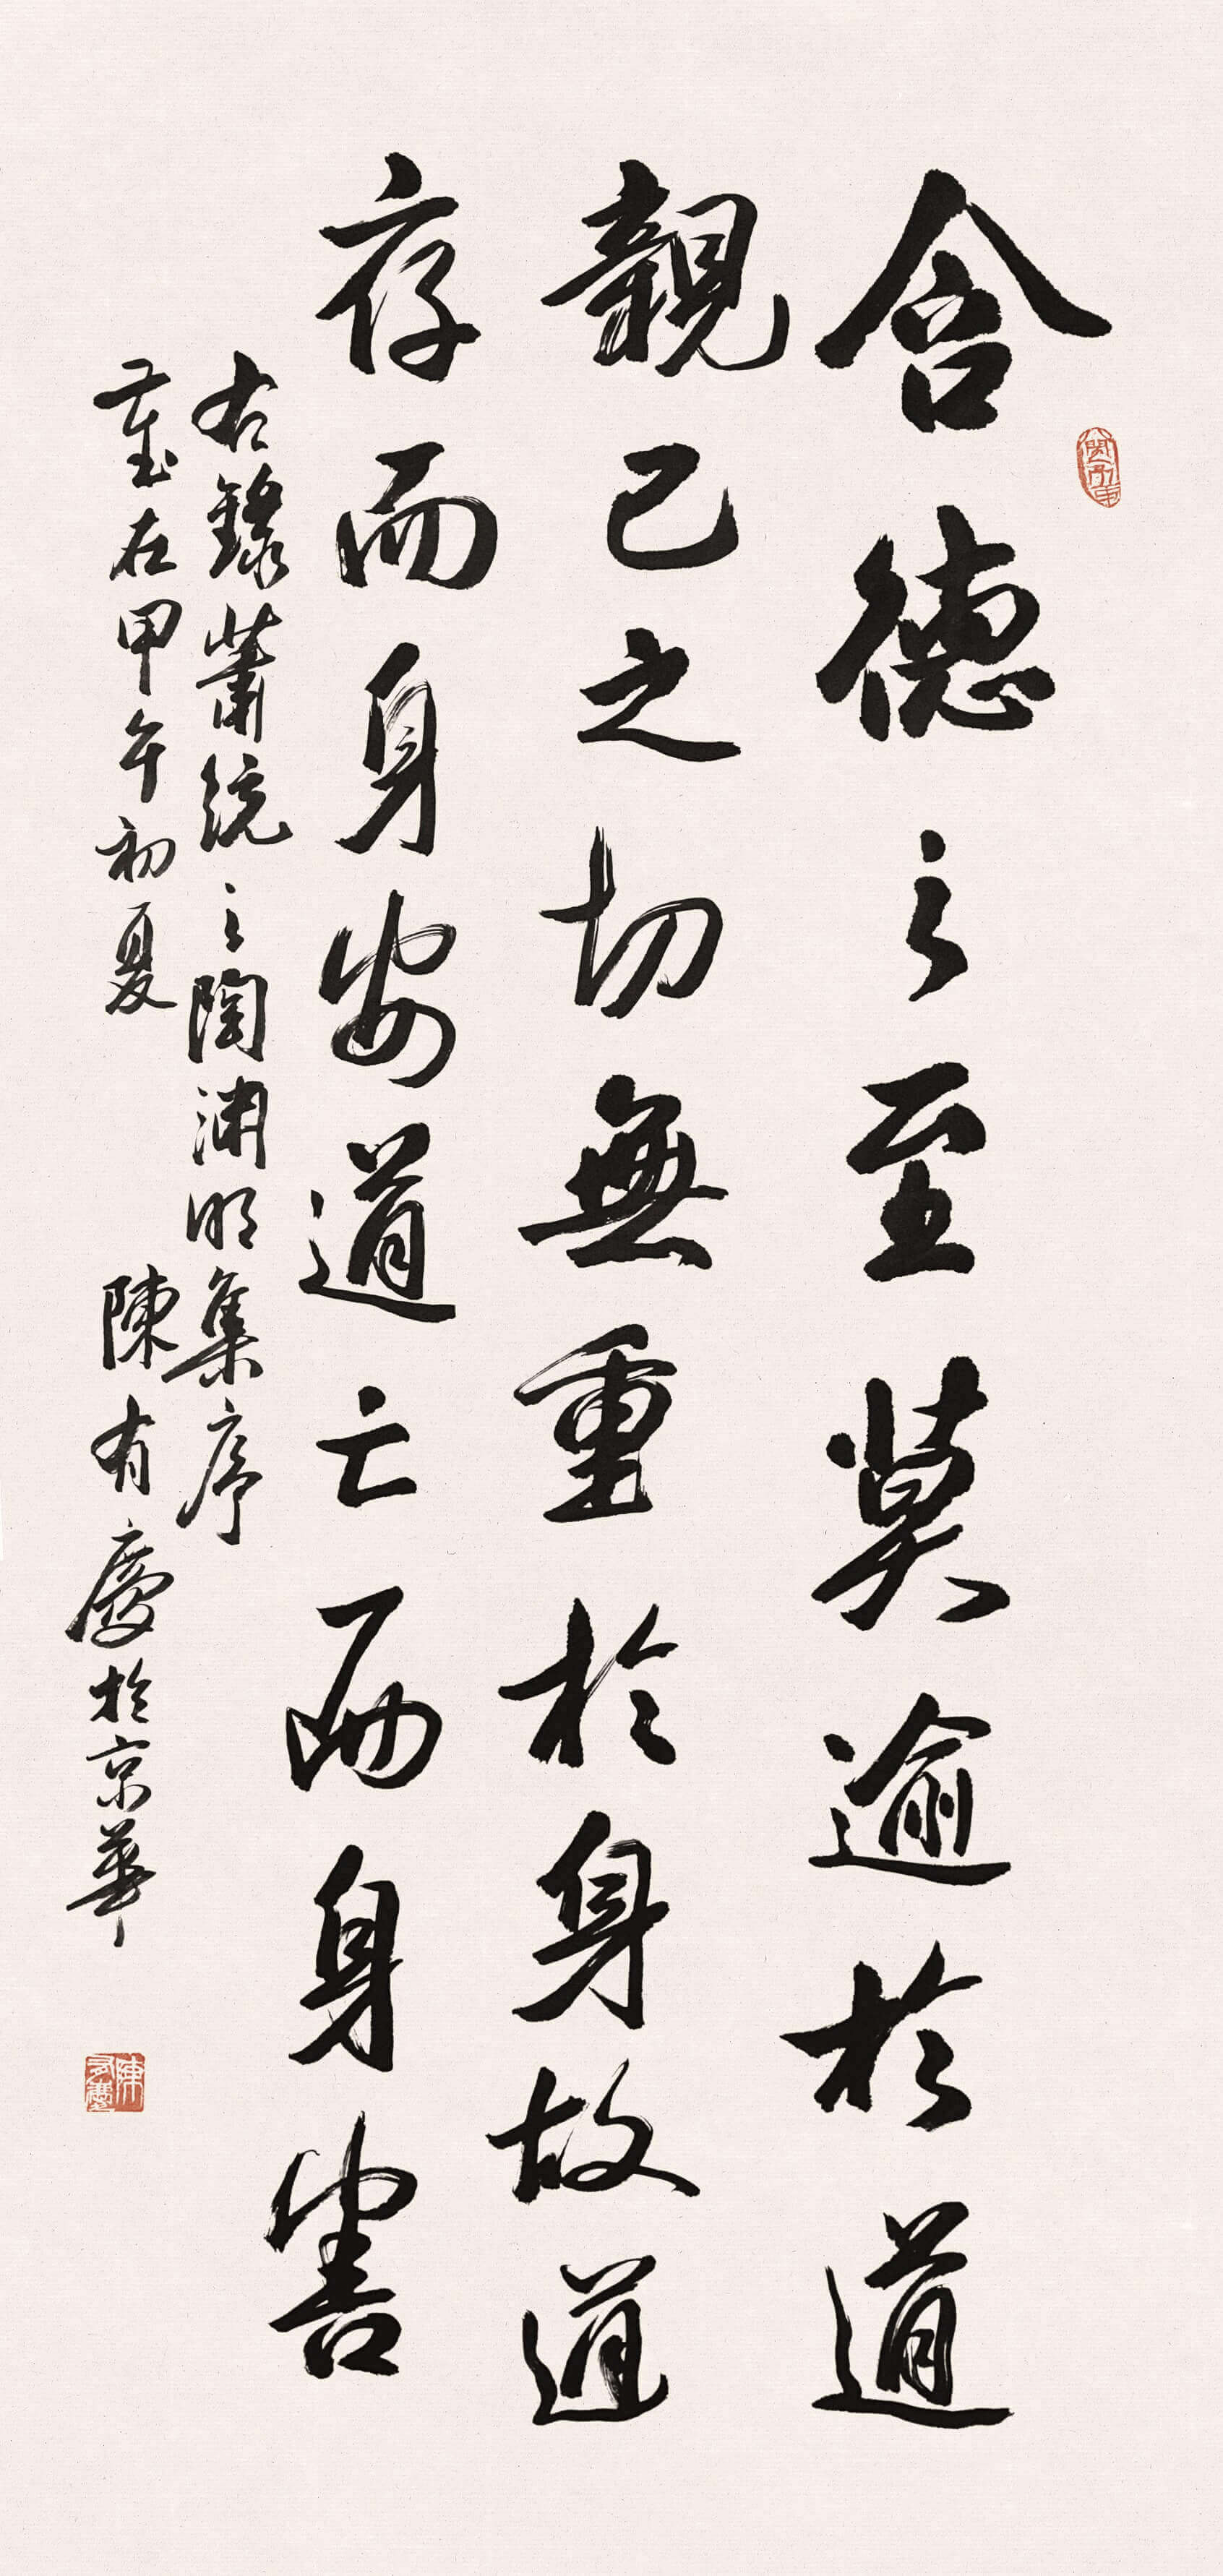 含德之至莫逾於道
親己之切無重於身故道
存而身安道亡而身害
右録蕭統之陶渊明集序
歲在甲午初夏 陳有慶於京華
陳有慶